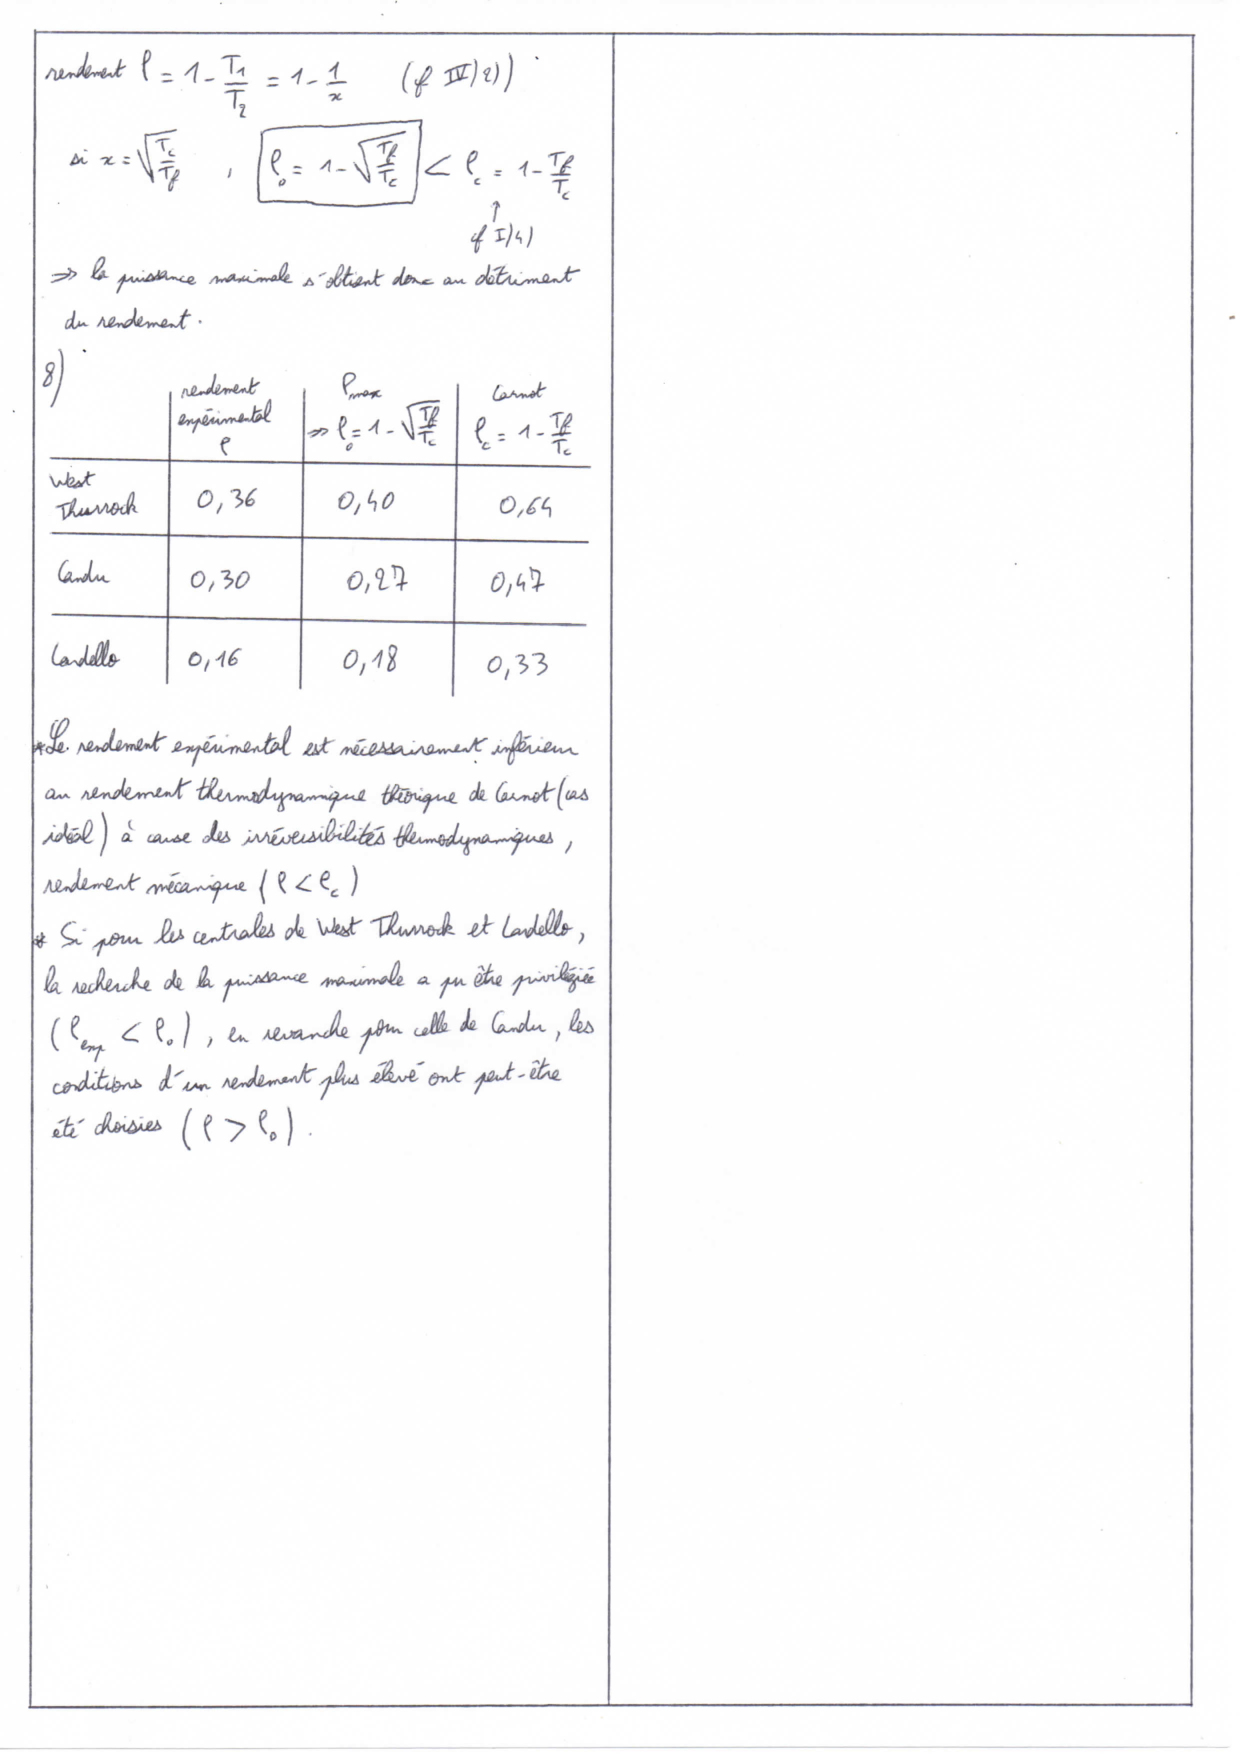 rendement ρ = 1 - T₁/T₂ = 1 - 1/x (cf IV) 2))
si x = √(Tc/Tf) , ρ₀ = 1 - √(Tf/Tc) < ρc = 1 - Tf/Tc
↑
cf I) 4)
⇒ la puissance maximale s'obtient donc au détriment
du rendement.
8)
rendement expérimental ρ | Pmax ⇒ ρ₀ = 1 - √(Tf/Tc) | Carnot ρc = 1 - Tf/Tc
West Thurrock | 0,36 | 0,40 | 0,64
Candu | 0,30 | 0,27 | 0,47
Lardello | 0,16 | 0,18 | 0,33
* Le rendement expérimental est nécessairement inférieur
au rendement thermodynamique théorique de Carnot (cas
idéal) à cause des irréversibilités thermodynamiques,
rendement mécanique (ρ < ρc)
* Si pour les centrales de West Thurrock et Lardello,
la recherche de la puissance maximale a pu être privilégiée
(ρexp < ρ₀), en revanche pour celle de Candu, les
conditions d'un rendement plus élevé ont peut-être
été choisies (ρ > ρ₀).